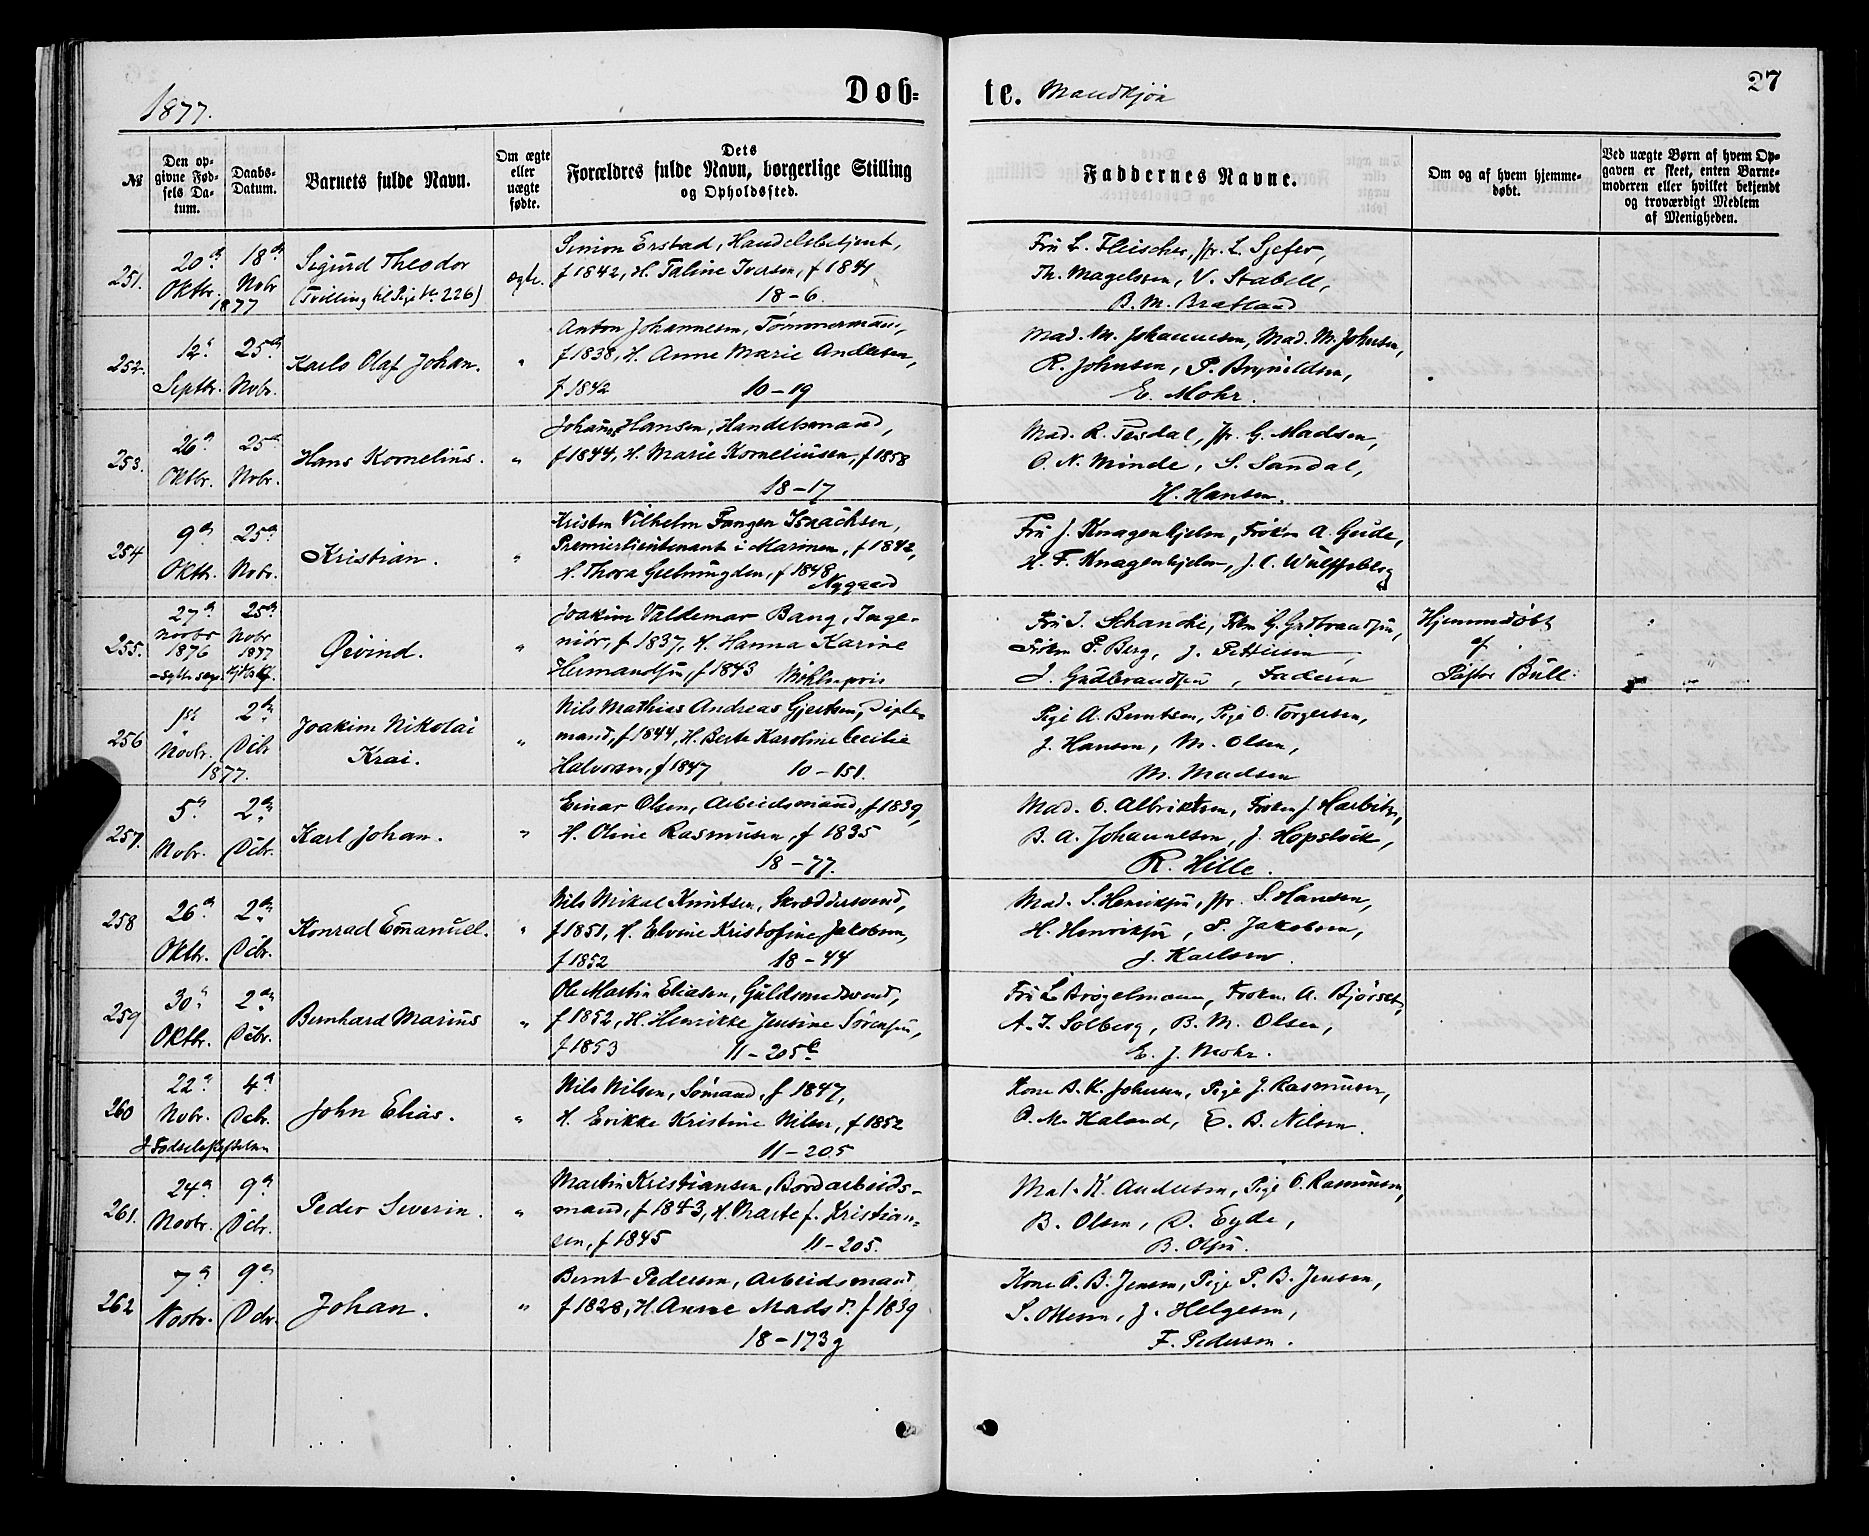 1877.
Dob=
te. Mandkjøn
27
№
Den op-
givne Fød-
sels Da-
tum.
Daabs-
Datum.
Barnets fulde Navn.
Om ægte
eller
uægte
fødte.
Dets
Forældres fulde Navn, borgerlige Stilling
og Opholdssted.
Faddernes Navne.
Om og af hvem hjemme-
døbt.
Ved uægte Børn af hvem Op-
gaven er skeet, enten Barne-
moderen eller hvilket bekjendt
og troværdigt Medlem
af Menigheden.
251.
20de
Oktbr.
18de
Novbr
1877
Sigurd Theodor
(Tvilling til Pige No. 226)
ægte.
Simon Erstad, Handelsbetjent,
f 1842, H. Taline Iversen, f 1841
18-6
Fru L. Fleischer, Jfr. L.
Th. Magelssen, V. Stabell,
B. M. Bratland
252.
12te
Septbr.
25de
Nobr.
Karlo Olaf Johan.
"
Anton Johannesen, Tømmermand,
f 1838, H. Anne Marie Andersen,
f 1842 10-19
Mad. M. Johannesen, Mad. M. Johnsen,
R. Johnsen, P. Brynildsen,
E. Mohr.
253.
26de
Oktbr.
25de
Nobr.
Hans Kornelius.
"
Johans Hansen, Handelsmand,
f 1844, H. Marie Korneliusen, f 1858
18-17
Mad. R. Tesdal, Jfr. G. Madsen,
O. N. Minde, S. Sandal,
H. Hansen.
254
9de
Oktbr.
25de
Nobr.
Kristian.
"
Kristen Vilhelm Fangen Isaachsen,
Premierlieutenant i Marinen, f 1842,
H. Thora Gjelmuyden, f 1848
Nygaard
Fru J. Knagenhjelm, Frøken A. Geide,
H. F. Knagenhjelm, J. C. Wulffsberg
255.
27de
Novbr
1876
25de
Nobr
1877
Øivind.
"
Joakim Valdemar Bang, Inge-
niør, f 1837, H. Hanna Karine
Hermandsen, f 1843 Møhlenpris
Fru I. Schanche, Frkn G. Gudbrandsen,
Frøken P. Berg, J. Pettersen,
J. Gudbrandsen, Faderen
Hjemmedøbt
af
Pastor Bull.
256
1ste
Novbr.
2den
Decbr
1877.
Joakim Nikolai
Krai.
"
Nils Mathias Andreas Gjertsen, Diple-
mand, f 1844, H. Berte Karoline Cecilie
Halvorsen, f 1847 10-151.
Pige A. Berntsen, Pige O. Torgersen,
J. Hansen, M. Olsen,
M. Madsen
257.
5te
Nobr.
2den
Decbr.
Karl Johan.
"
Einar Olsen, Arbeidsmand, f 1839,
H. Oline Rasmusen, f 1835
18-77.
Mad. O. Albriktsen, Frøken J. Harbitz,
B. A. Johannesen, J. Hopstock,
R. Hille.
258
26de
Oktbr.
2den
Decbr.
Konrad Emanuel.
"
Nils Mikal Knutsen, Skræddersvend,
f 1851, H. Elvine Kristofine Jakobsen,
f 1852 18-44
Mad. S. Henriksen, Jfr. S. Hansen,
H. Henriksen, P. Jakobsen,
J. Karlsen.
259
30te
Oktbr.
2den
Decbr.
Bernhard Marius
"
Ole Martin Eliasen, Guldsmedsvend,
f 1852, H. Henrikke Jensine Sørensen,
f 1853 11-205b
Fru L. Brøgelmann, Frøken A. Bjørset,
A. T. Solberg, B. M. Olsen,
E. J. Mohr.
260
22de
Nobr.
4de
Decbr.
John Elias.
"
Nils Nilsen, Sømand, f 1847,
H. Erikke Kristine Nilsen, f 1852
11-205
I Fødselsstiftelsen
Kone B. K. Johnsen, Pige J. Rasmusen,
O. M. Haland, E. B. Nilsen.
261.
24de
Novbr.
9de
Decbr.
Peder Severin.
"
Martin Kristiansen, Bordarbeids-
mand, f 1843, H. Marte f. Kristian-
sen, f 1845 11-205.
Mad. K. Andersen, Pige O. Rasmusen,
B. Olsen, D. Eyde,
B. Olsen.
262
7de
Novbr.
9de
Decbr.
Johan.
"
Bernt Pedersen, Arbeidsmand
f 1828, H. Anne Mads D. f 1839
18-173g
Kone A. B. Jensen, Pige P. B. Jensen,
S. Ottesen, J. Helgesen,
F. Pedersen.